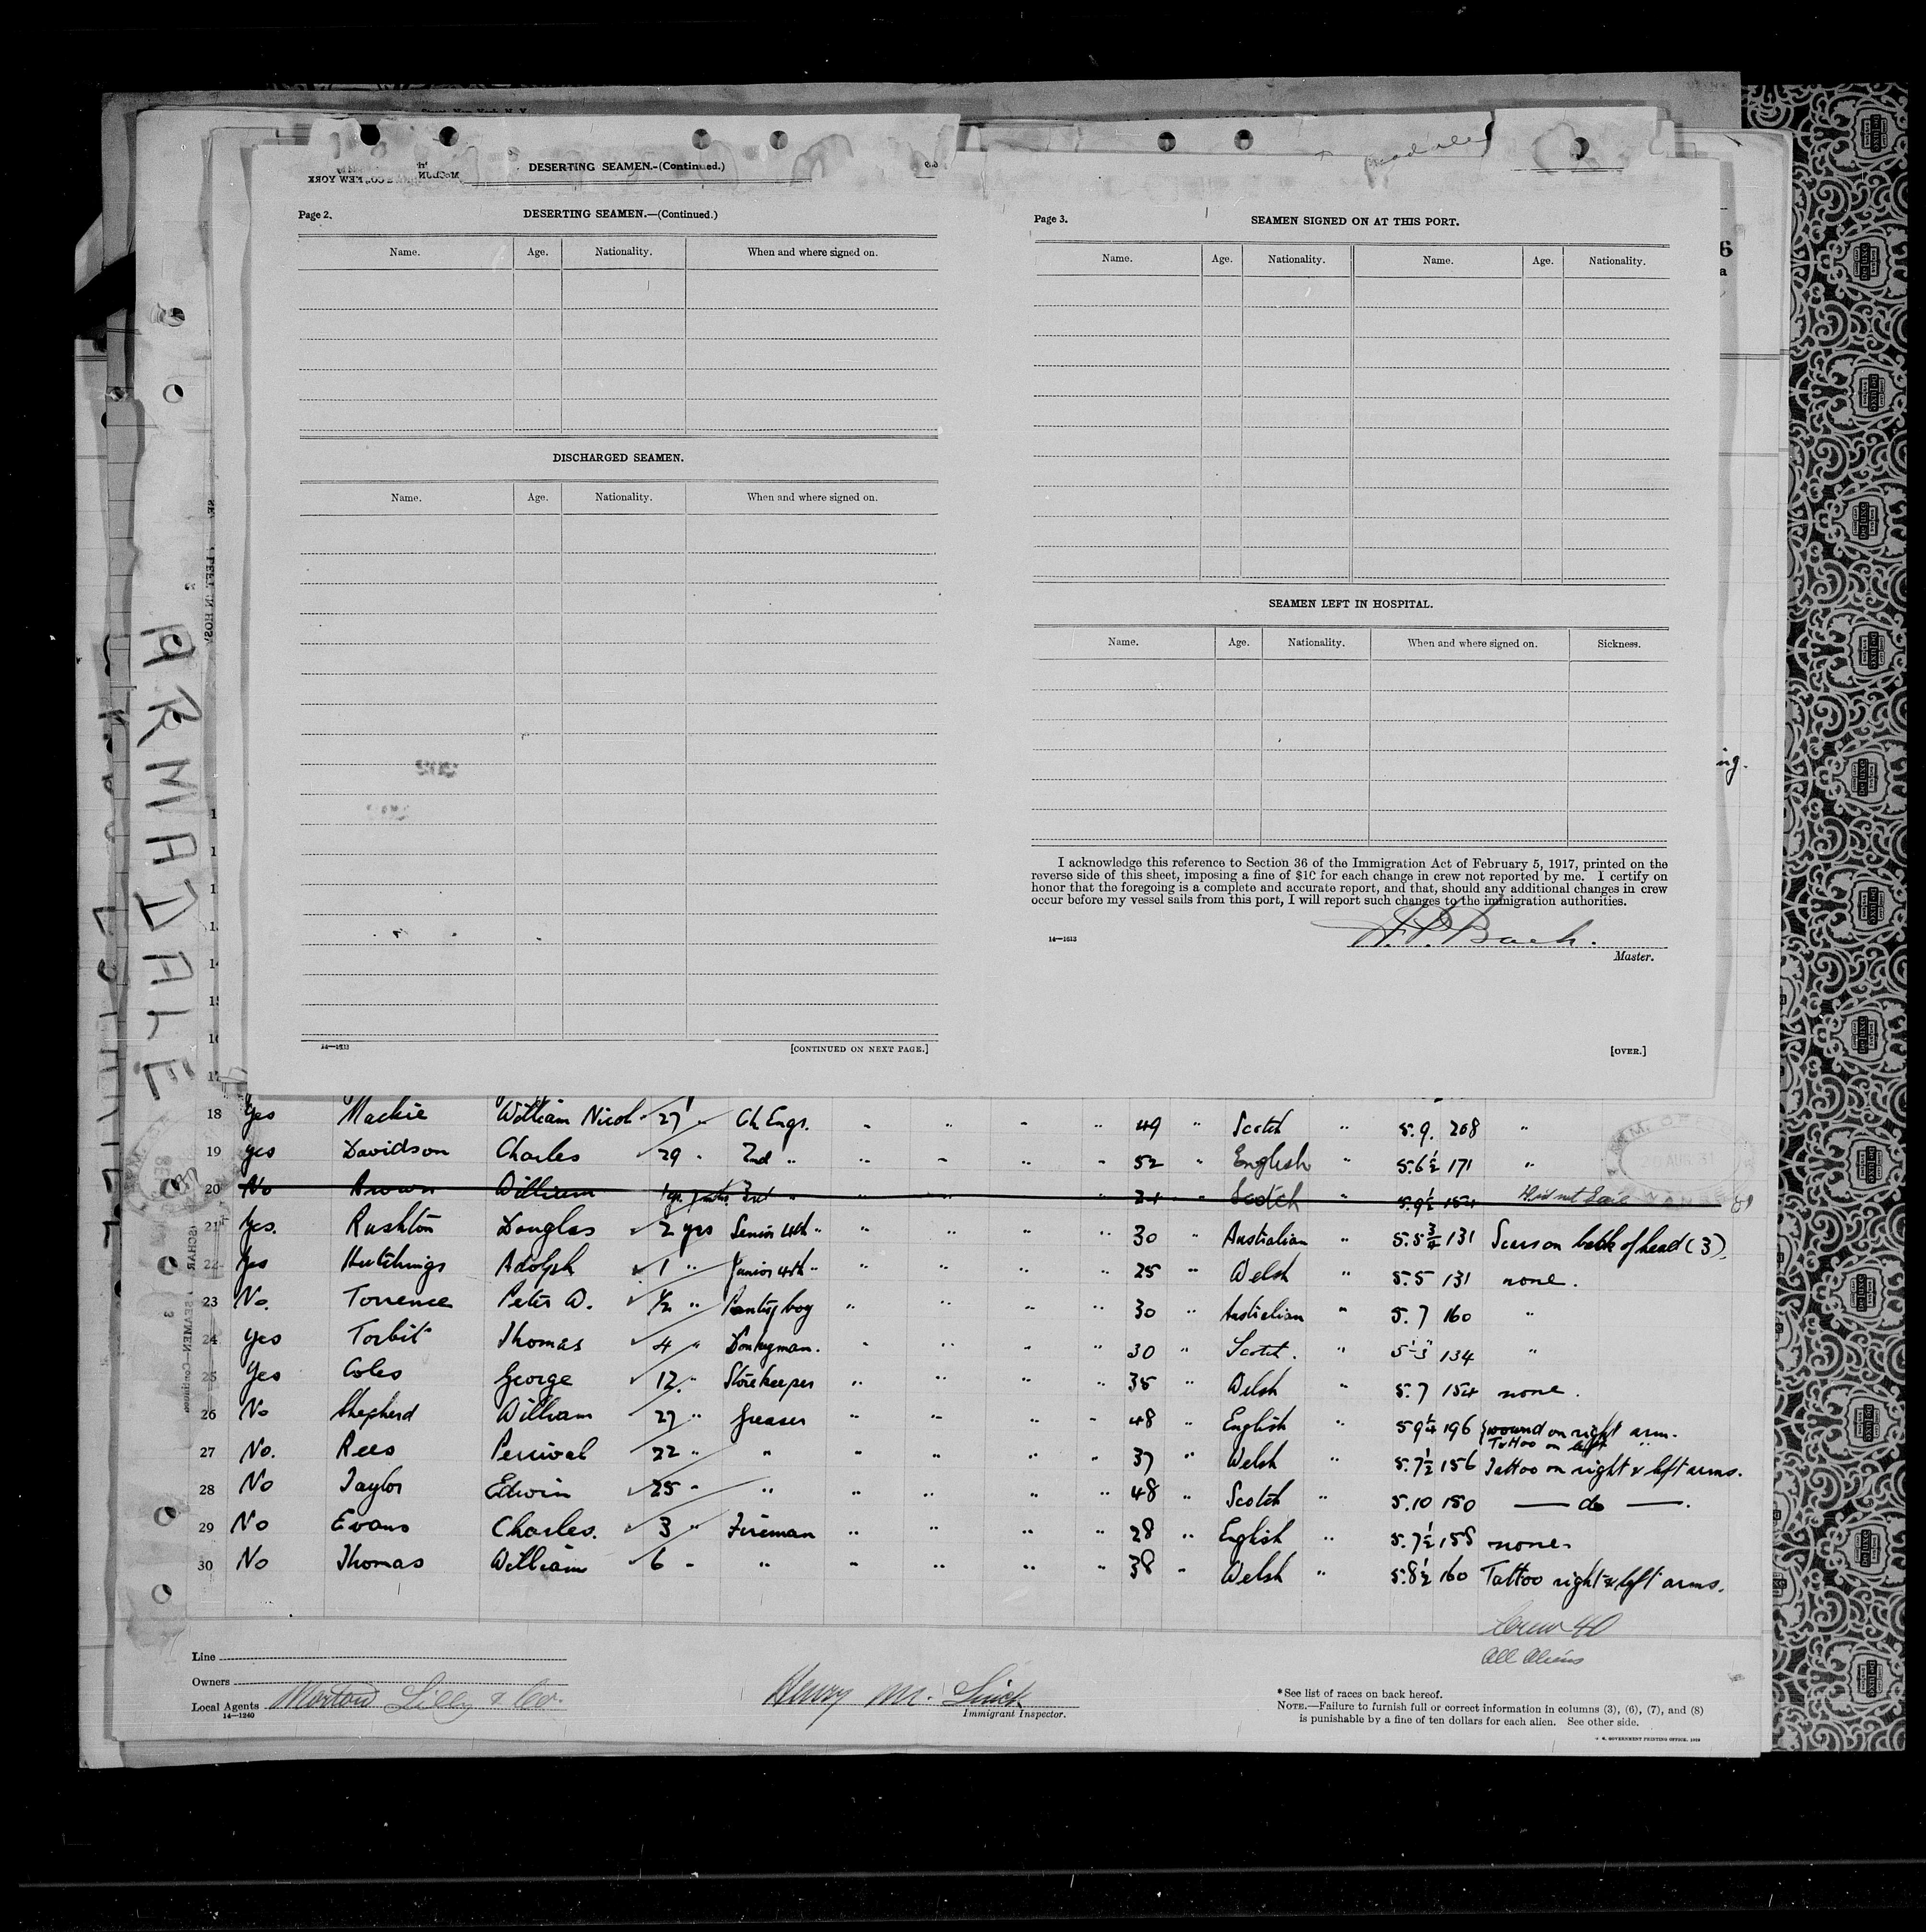 DESERTING SEAMEN.-(Continued.)
Page 2.
DESERTING SEAMEN.—(Continued.)
Name. Age. Nationality. When and where signed on.
DISCHARGED SEAMEN.
Name. Age. Nationality. When and where signed on.
14—1613
[CONTINUED ON NEXT PAGE.]
Page 3.
SEAMEN SIGNED ON AT THIS PORT.
Name. Age. Nationality. Name. Age. Nationality.
SEAMEN LEFT IN HOSPITAL.
Name. Age. Nationality. When and where signed on. Sickness.
I acknowledge this reference to Section 36 of the Immigration Act of February 5, 1917, printed on the
reverse side of this sheet, imposing a fine of $10 for each change in crew not reported by me. I certify on
honor that the foregoing is a complete and accurate report, and that, should any additional changes in crew
occur before my vessel sails from this port, I will report such changes to the immigration authorities.
14—1613
Master.
[OVER.]
ARMADALE
18 Yes Mackie William Nicol 27 " Ch Engr. " " " " 49 " Scotch " 5.9. 208 "
19 yes Davidson Charles 29 " 2nd " " " " " 52 " English " 5.6½ 171 "
20 No Brown William 3rd " " " " Scotch " 5.9½ 154 Did not Sail
21 Yes. Rushton Douglas 2 yrs Senior 4th " " " " " 30 " Australian " 5.5¾ 131 Scars on back of head (3).
22 Yes Hutchings Adolph 1 " Junior 4th " " " " " 25 " Welsh " 5.5 131 none.
23 No. Torrence Peter A. ½ " Pantry boy " " " " 30 " Australian " 5.7 160 "
24 Yes Torbit Thomas 4 " Donkeyman. " " " " 30 " Scotch. " 134 "
25 Yes Coles George 12 " Storekeeper " " " " 35 " Welsh " 5.7 154 none.
26 No Shepherd William 27 " Greaser " " " " 48 " English " 5 9¼ 196 {wound on right arm.
Tattoo on left "
27 No. Rees Percival 22 " " " " " " 37 " Welsh " 5.7½ 156 Tattoo on right & left arms.
28 No Taylor Edwin 25 " " " " " " 48 " Scotch " 5.10 150 — do —.
29 No Evans Charles. 3 " Fireman " " " " 28 " English " 5.7½ 155 none.
30 No Thomas William 6 " " " " " " 38 " Welsh " 5.8½ 160 Tattoo right & left arms.
Crew 40
All Aliens
Line
Owners
Local Agents Morton Lilly & Co.
14—1240
Henry M.
Immigrant Inspector.
*See list of races on back hereof.
NOTE.—Failure to furnish full or correct information in columns (3), (6), (7), and (8)
is punishable by a fine of ten dollars for each alien. See other side.